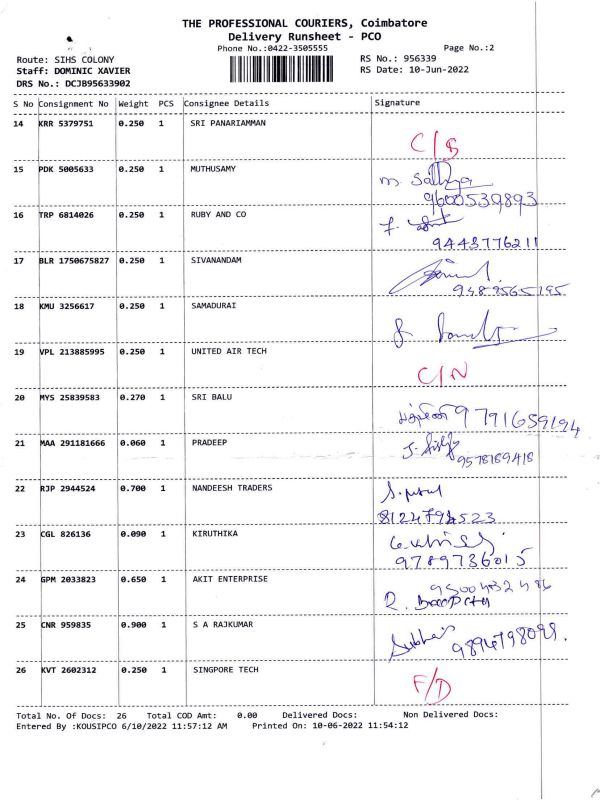 THE PROFESSIONAL COURIERS, Coimbatore
Delivery Runsheet - PCO
Phone No.:0422-3505555 Page No.:2
Route: SIHS COLONY RS No.: 956339
Staff: DOMINIC XAVIER RS Date: 10-Jun-2022
DRS No.: DCJB95633902
S No Consignment No Weight PCS Consignee Details Signature
14 KRR 5379751 0.250 1 SRI PANARIAMMAN
15 PDK 5005633 0.250 1 MUTHUSAMY
m. Sathya
9600539893
16 TRP 6814026 0.250 1 RUBY AND CO
9443776211
17 BLR 1750675827 0.250 1 SIVANANDAM
18 KMU 3256617 0.250 1 SAMADURAI
19 VPL 213885995 0.250 1 UNITED AIR TECH
C/N
20 MYS 25839583 0.270 1 SRI BALU
9791659194
21 MAA 291181666 0.060 1 PRADEEP
9578189418
22 RJP 2944524 0.700 1 NANDEESH TRADERS
23 CGL 826136 0.090 1 KIRUTHIKA
9789736015
24 GPM 2033823 0.650 1 AKIT ENTERPRISE
25 CNR 959835 0.900 1 S A RAJKUMAR
9894798099.
26 KVT 2602312 0.250 1 SINGPORE TECH
F/D
Total No. Of Docs: 26 Total COD Amt: 0.00 Delivered Docs: Non Delivered Docs:
Entered By :KOUSIPCO 6/10/2022 11:57:12 AM Printed On: 10-06-2022 11:54:12